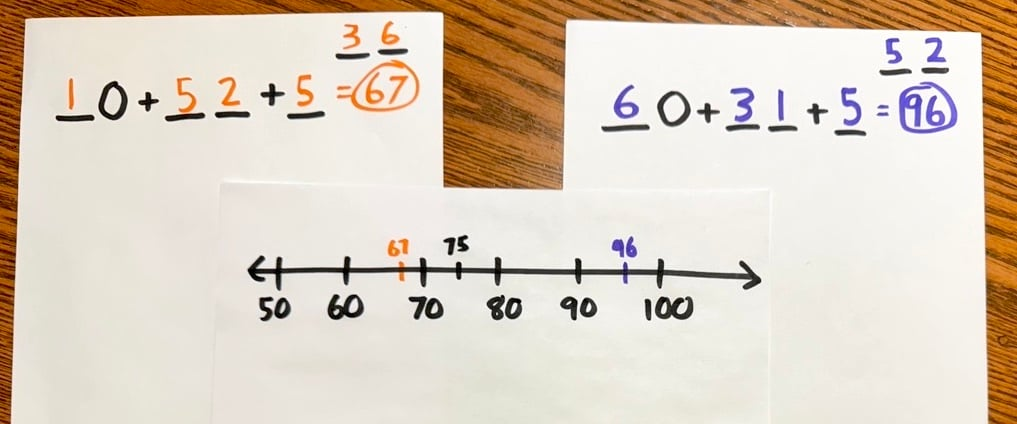 3 6
10 + 52 + 5 = 67
5 2
60 + 31 + 5 = 96
67 75 96
50 60 70 80 90 100